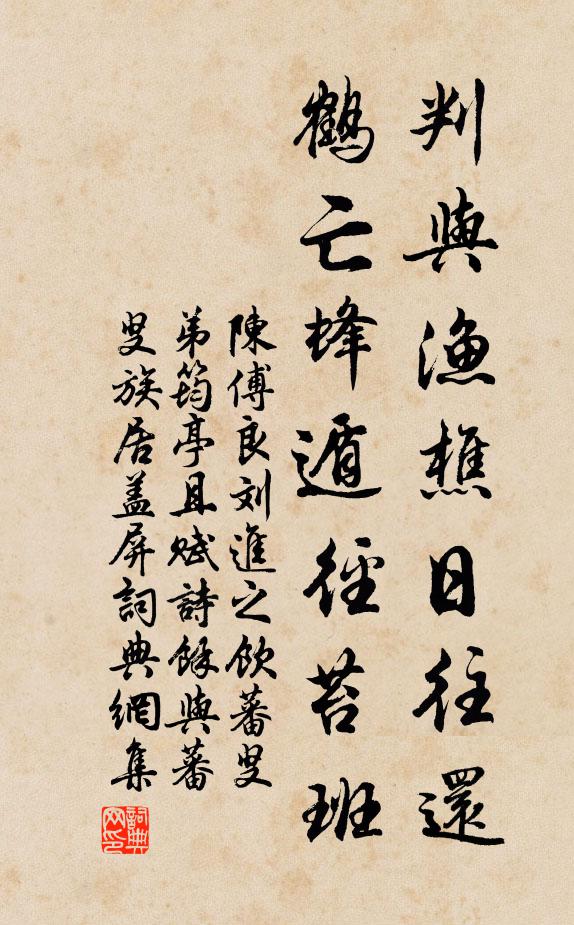 判與漁樵日往還
鶴亡蜂遁徑苔班
陳傅良刘進之飲蕃叟
弟筠亭且賦詩餘與蕃
叟族居盖屏詞典網集
詞典网印